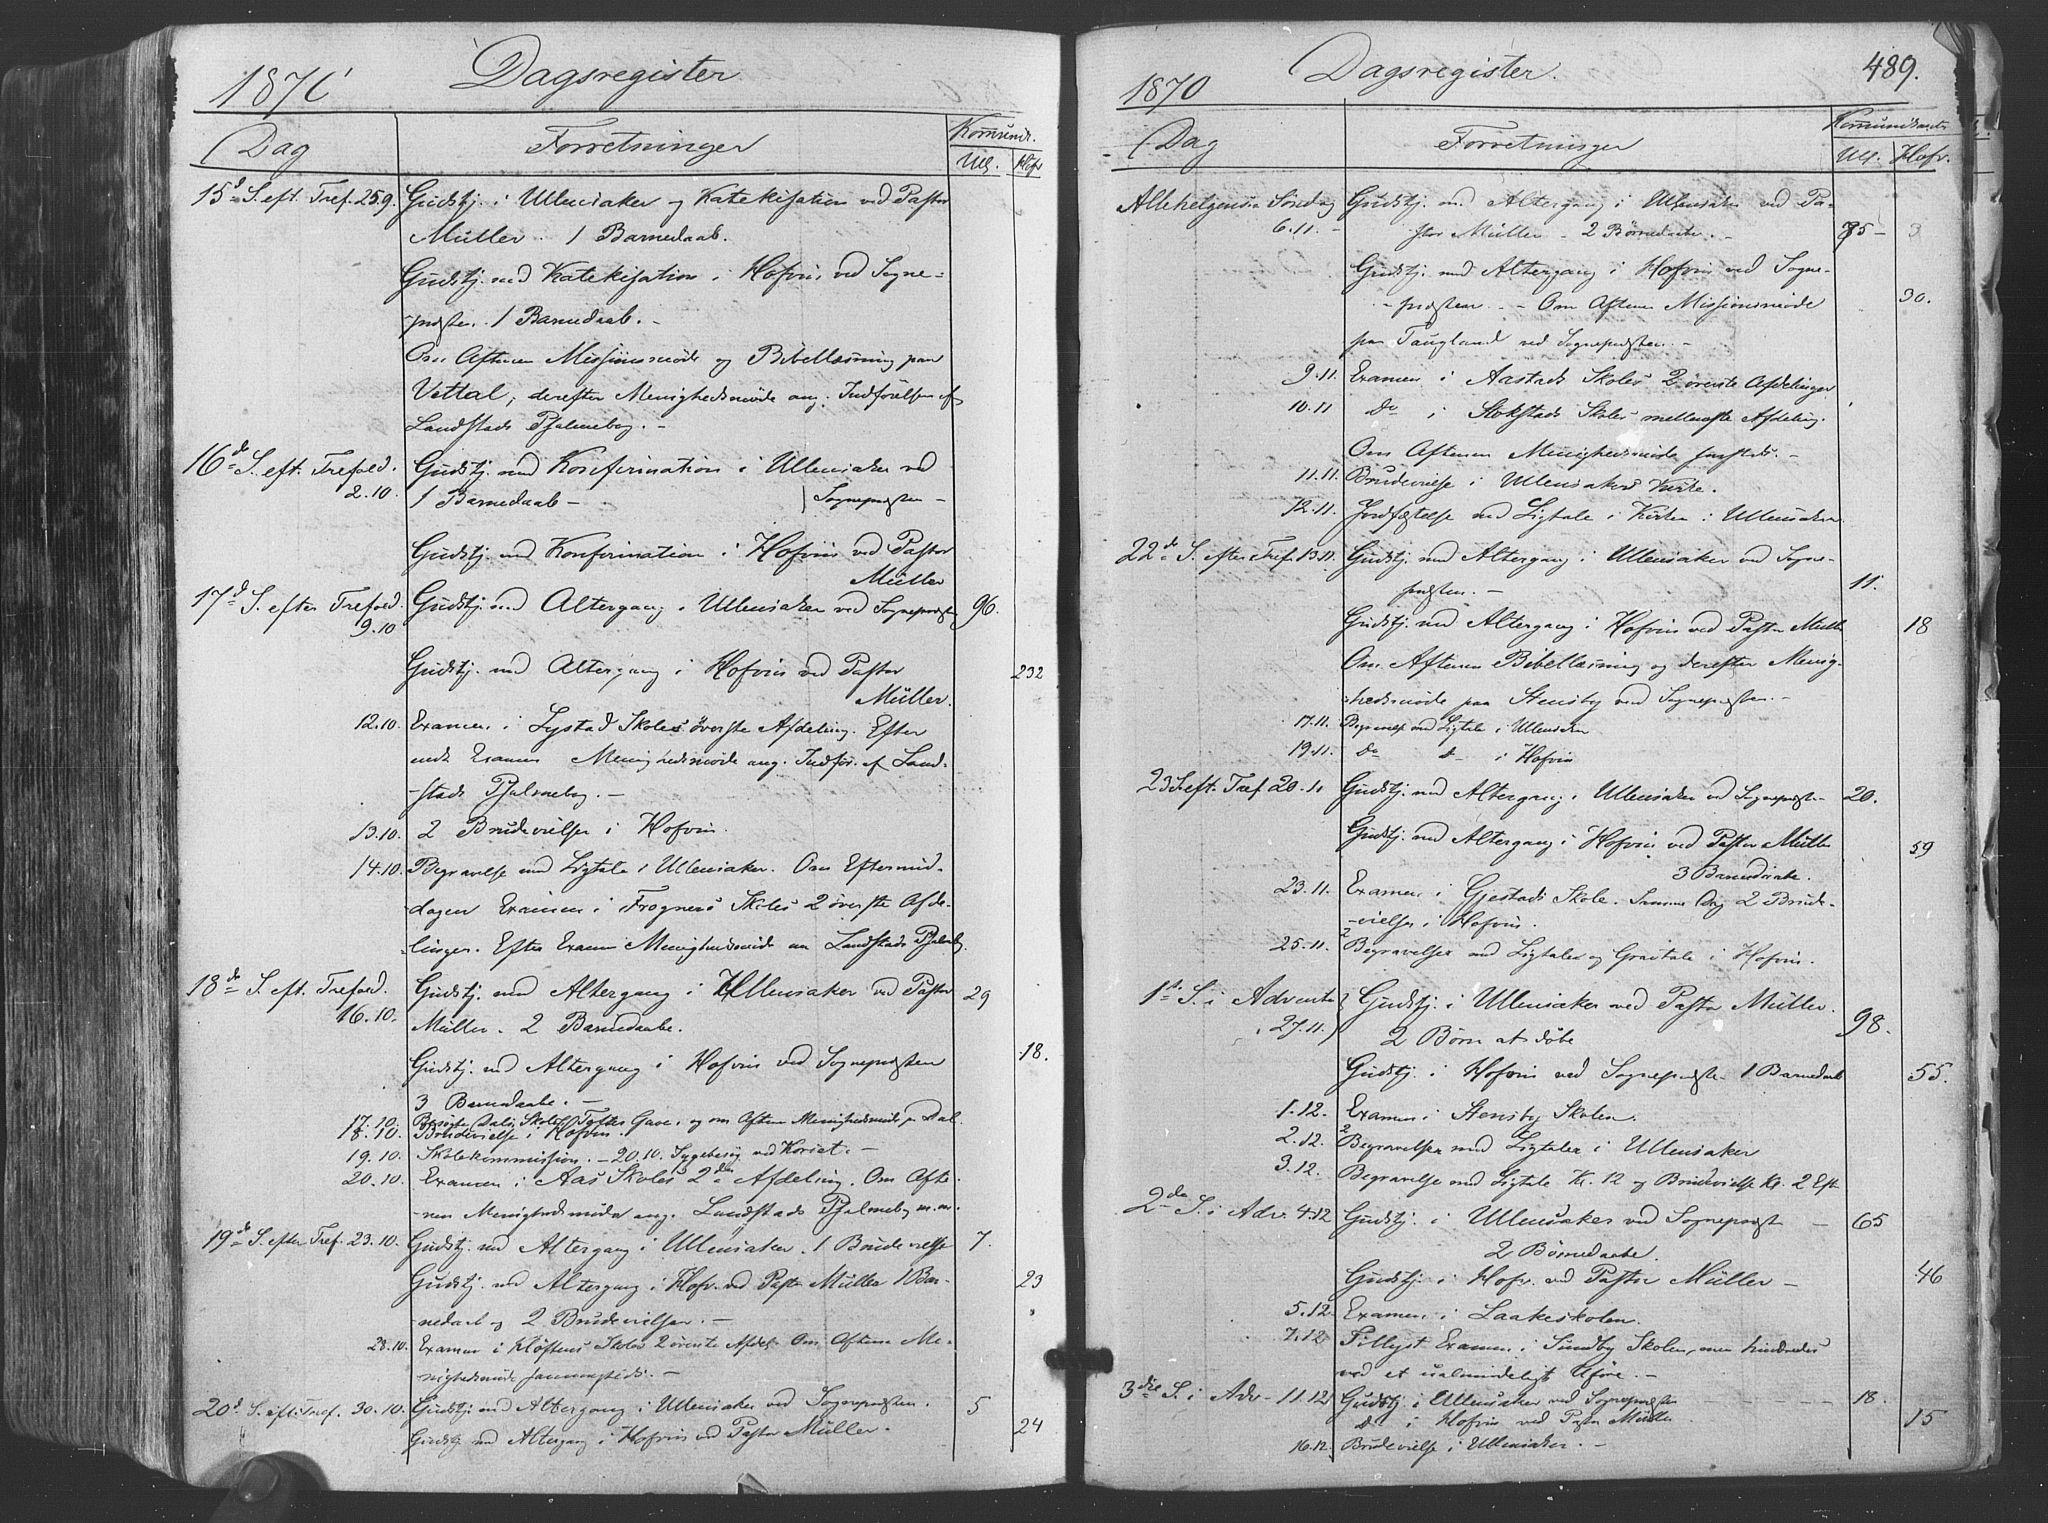 1870
Dagsregister
Dag
Forretninger
Komunik.
Ull. Hofv
15d S. eft. Tref. 25.9.
Gudstj. i Ullensaker og Katekisation ved Pastor
Müller. 1 Barnedaab.
Gudstj. med Katekisation i Hofvin ved Sogne-
præsten. 1 Barnedaab. -
Om Aftenen Missionsmöde og Bibellæsning paa
Vettal, derefter Menighedsmöde ang. Indförelsen af
Landstads Psalmebog. -
16de S. eft. Trefold.
2.10.
Gudstj. med Konfirmation i Ullensaker ved
1 Barnedaab - Sognepræsten -
Gudstj. med Konfirmation i Hofvin ved Pastor
Müller
17d S. efter Trefold.
9.10
Gudstj. med Altergang i Ullensaker ved Sognepræsten 96.
Gudstj. med Altergang i Hofvin ved Pastor 232
Müller.
12.10. Examen i Lystad Skoles överste Afdeling. Efter
endt Examen Menighedsmöde ang. Indför. af Land-
-stads Psalmebog. -
13.10. 2 Brudevielser i Hofvin.
14.10. Begravelse med Ligtale i Ullensaker. Om Eftermid-
-dagen Examen i Frogners Skoles 2 överste Afde-
-linger. Efter Examen Menighedsmöde om Landstads Psalmeb.
18de S. eft. Trefold.
16.10.
Gudstj. med Altergang i Ullensaker ved Pastor 29
Müller. 2 Barnedaabe.
Gudstj. med Altergang i Hofvin ved Sognepræsten 18.
3 Barnedaabe. -
17.10. Besögte Dals Skole, og om Aften Menighedsmöde p. Dal
18.10. Brudevielse i Hofvin.
19.10. Skolekommission. - 20.10. Sygebesög ved Koriet. -
20.10. Examen i Aas Skoles 2den Afdeling. Om Afte-
-nen Menighedsmöde ang. Landstads Psalmebog m.m.
19de S. efter Tref. 23.10.
Gudstj. med Altergang i Ullensaker. 1 Brudevielse 7.
Gudstj. med Altergang i Hofv. ved Pastor Müller 1 Bar- 23
nedaab og 2 Brudevielser. -
28.10. Examen i Klöftens Skoles 2 överste Afdel. Om Aftenen Me-
nighedsmöde sammesteds. -
20d S. eft. Tref. 30.10.
Gudstj. med Altergang i Ullensaker ved Sognepræsten. 5
Gudstj. med Altergang i Hofvin ved Pastor Müller. 24
1870
Dagsregister.
489.
Dag
Forretninger
Komunikanter
Ull. Hofv.
Allehelgens Söndag
6.11. -
Gudstj. med Altergang i Ullensaker ved Pa-
stor Müller - 2 Börnedaabe. - 35 -
Gudstj. med Altergang i Hofvin ved Sogne-
-præsten. - Om Aftenen Missionsmöde 30.
paa Taugland ved Sognepræsten. -
9.11. Examen i Aastads Skoles 2 överste Afdelinger
10.11 do i Stokstads Skoles mellemste Afdeling.
Om Aftenen Menighedsmöde sammesteds. -
11.11. Brudevielse i Ullensakers Kirke.
12.11. Jordfæstelse med Ligtale i Kirken i Ullensaker
22de S. efter Tref. 13.11.
Gudstj. med Altergang i Ullensaker ved Sogne-
præsten. - 11.
Gudstj. med Altergang i Hofvin ved Pastor Müller 18
Om Aftenen Bibellæsning og derefter Menig-
hedsmöde paa Stensby ved Sognepræsten. -
17.11. Begravelse med Ligtale i Ullensaker
19.11. do do i Hofvin
23 S. eft. Tref. 20.11
Gudstj. med Altergang i Ullensaker ved Sognepræsten 20.
Gudstj. med Altergang i Hofvin ved Pastor Müller 59
3 Barnedaabe.
23.11. Examen i Gjestads Skole. Samme Dag 2 Brude-
-vielser i Hofvin.
25.11. 2 Begravelser med Ligtaler og Gravtale i Hofvin.
1ste S. i Advent
27.11.
Gudstj. i Ullensaker ved Pastor Müller.
2 Börn at döbe 98.
Gudstj. i Hofvin ved Sognepræsten 1 Barnedaab 55.
1.12. Examen i Stensby Skolen.
2.12. 2 Begravelser med Ligtaler i Ullensaker
3.12. Begravelse med Ligtale Kl. 12 og Brudevielse Kl. 2 Eft
2den S. i Adv. 4.12
Gudstj. i Ullensaker ved Sognepræst - 65
2 Börnedaabe.
Gudstj. i Hofv. ved Pastor Müller - 46
5.12. Examen i Laakeskolen.
7.12 Tillyst Examen i Sundby Skolen, men hindredes
ved et ualmindeligt Uföre. -
3die S. i Adv - 11.12
Gudstj. i Ullensaker ved Sognepræsten 18.
do i Hofvin ved Pastor Müller. 15
16.12. Brudevielse i Ullensaker. -